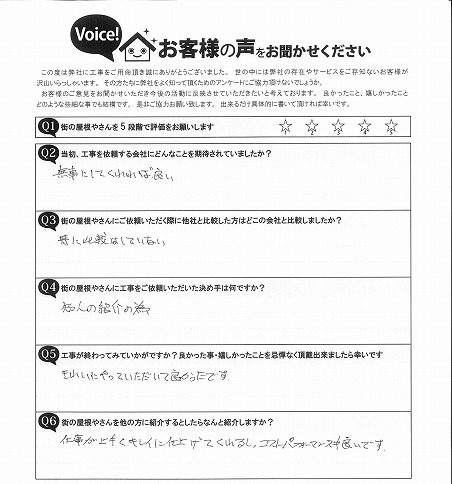 Voice!
お客様の声をお聞かせください
この度は弊社に工事をご用命頂き誠にありがとうございました。世の中には弊社の存在やサービスをご存知ないお客様が
沢山いらっしゃいます。その方たちに弊社をよく知って頂くためのアンケートにご協力頂けないでしょうか。
お客様のご意見をお聞かせいただき今後の活動に反映させていただきたいと考えております。良かったこと、嬉しかったこと
どのような些細な事でも結構です。是非ご協力お願い致します。出来るだけ具体的に書いて頂ければ幸いです。
Q1 街の屋根やさんを5段階で評価をお願いします ☆1 ☆2 ☆3 ☆4 ☆5
Q2 当初、工事を依頼する会社にどんなことを期待されていましたか?
無事にしてくれれば良い
Q3 街の屋根やさんにご依頼いただく際に他社と比較した方はどこの会社と比較しましたか?
特に比較はしていない
Q4 街の屋根やさんに工事をご依頼いただいた決め手は何ですか?
知人の紹介の為
Q5 工事が終わってみていかがですか?良かった事・嬉しかったことを忌憚なく頂戴出来ましたら幸いです
きれいにやっていただいて良かったです
Q6 街の屋根やさんを他の方に紹介するとしたらなんと紹介しますか?
仕事が上手くキレイに仕上げてくれるし、コストパフォーマンスも良いです。